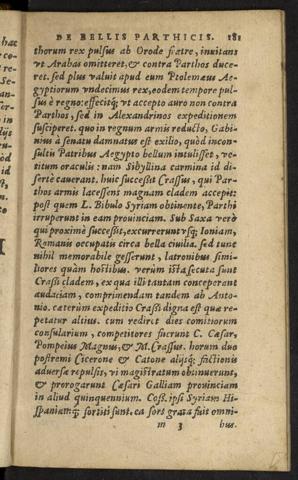 DE BELLIS PARTHICIS. 181
thorum rex pulsus ab Orode fratre, inuitans
vt Arabas omitteret, & contra Parthos duce-
ret. sed plus valuit apud eum Ptolemæus Ae-
gyptiorum vndecimus rex, eodem tempore pul-
sus è regno: effecitq; vt accepto auro non contra
Parthos, sed in Alexandrinos expeditionem
susciperet. quo in regnum armis reducto, Gabi-
nius à senatu damnatus est exilio, quòd incon-
sultis Patribus Aegypto bellum intulisset, ve-
titum oraculis: nam Sibyllina carmina id di-
sertè cauerant. huic successit Crassus, qui Par-
thos armis lacessens magnam cladem accepit:
post quem L. Bibulo Syriam obtinente, Parthi
irruperunt in eam prouinciam. Sub Saxa verò
qui proximè successit, excurrerunt vsq; Ioniam,
Romanis occupatis circa bella ciuilia. sed tunc
nihil memorabile gesserunt, latronibus simi-
liores quàm hostibus. verùm ista secuta sunt
Crassi cladem, ex qua illi tantam conceperant
audaciam, comprimendam tandem ab Anto-
nio. caeterùm expeditio Crassi digna est quæ re-
petatur altius. cum rediret dies comitiorum
consularium, competitores fuerunt C. Cæsar,
Pompeius Magnus, & M. Crassus. horum duo
postremi Cicerone & Catone alijsq; factionis
aduersæ repulsis, vi magistratum obtinuerunt,
& prorogarunt Cæsari Galliam prouinciam
in aliud quinquennium. Coss. ipsi Syriam Hi-
spaniamq; sortiti sunt. ea sors grata fuit omni-
m 3 bus.